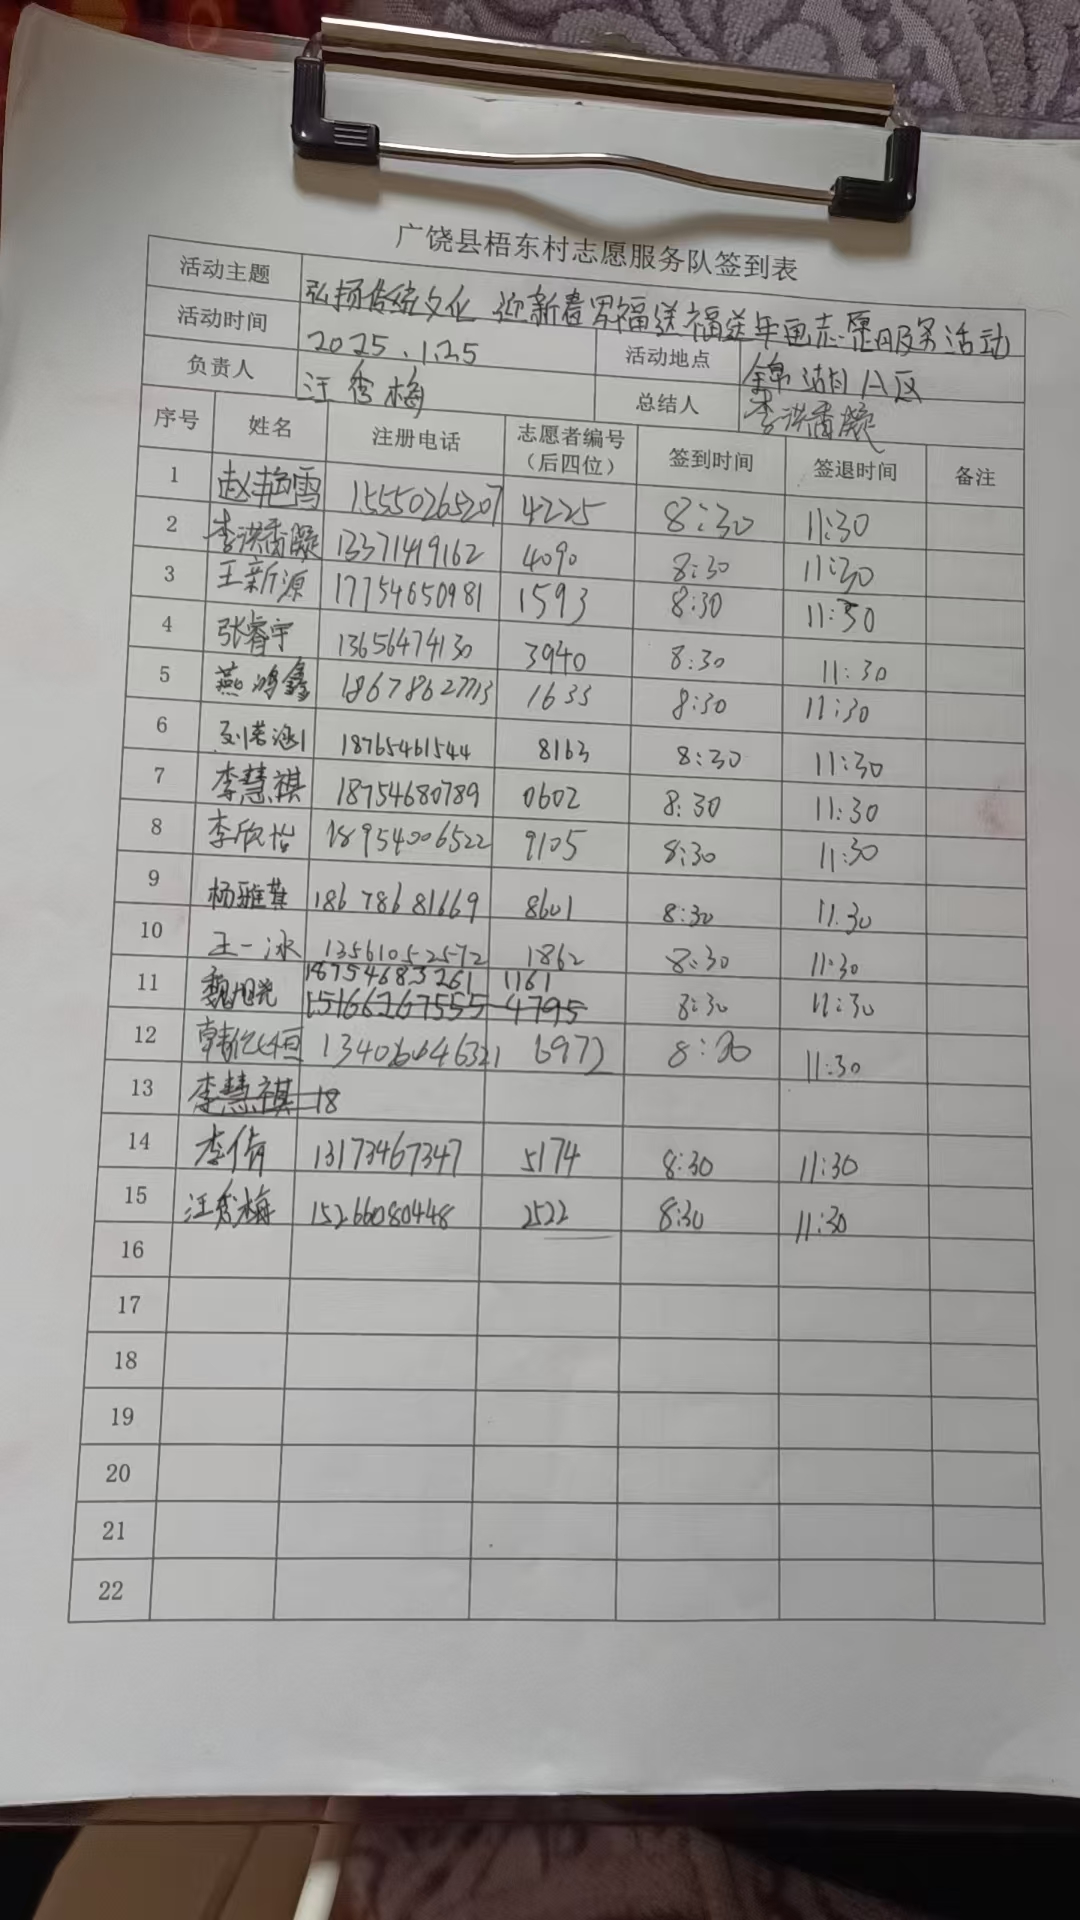 广饶县梧东村志愿服务队签到表
活动主题 弘扬传统文化 迎新春写福送福送年画志愿服务活动
活动时间 2025.1.25 活动地点 锦湖A区
负责人 汪秀梅 总结人 李洪香凝
序号 姓名 注册电话 志愿者编号（后四位） 签到时间 签退时间 备注
1 赵艳雪 15550265207 4225 8:30 11:30
2 李洪香凝 13371419162 4090 8:30 11:30
3 王新源 17754650981 1593 8:30 11:30
4 张睿宇 13656474130 3940 8:30 11:30
5 燕鸿鑫 18678627713 1633 8:30 11:30
6 刘若涵 18765461544 8163 8:30 11:30
7 李慧祺 18754680789 0602 8:30 11:30
8 李欣怡 18954006522 9105 8:30 11:30
9 杨雅其 18678681669 8601 8:30 11:30
10 王一冰 13561052572 1862 8:30 11:30
18754683261 1161
11 魏旭光 15166267555 4795 8:30 11:30
12 韩亿恒 13406646321 6972 8:30 11:30
13 李慧祺 18
14 李倩 13173467347 5174 8:30 11:30
15 汪秀梅 15266080448 2522 8:30 11:30
16
17
18
19
20
21
22